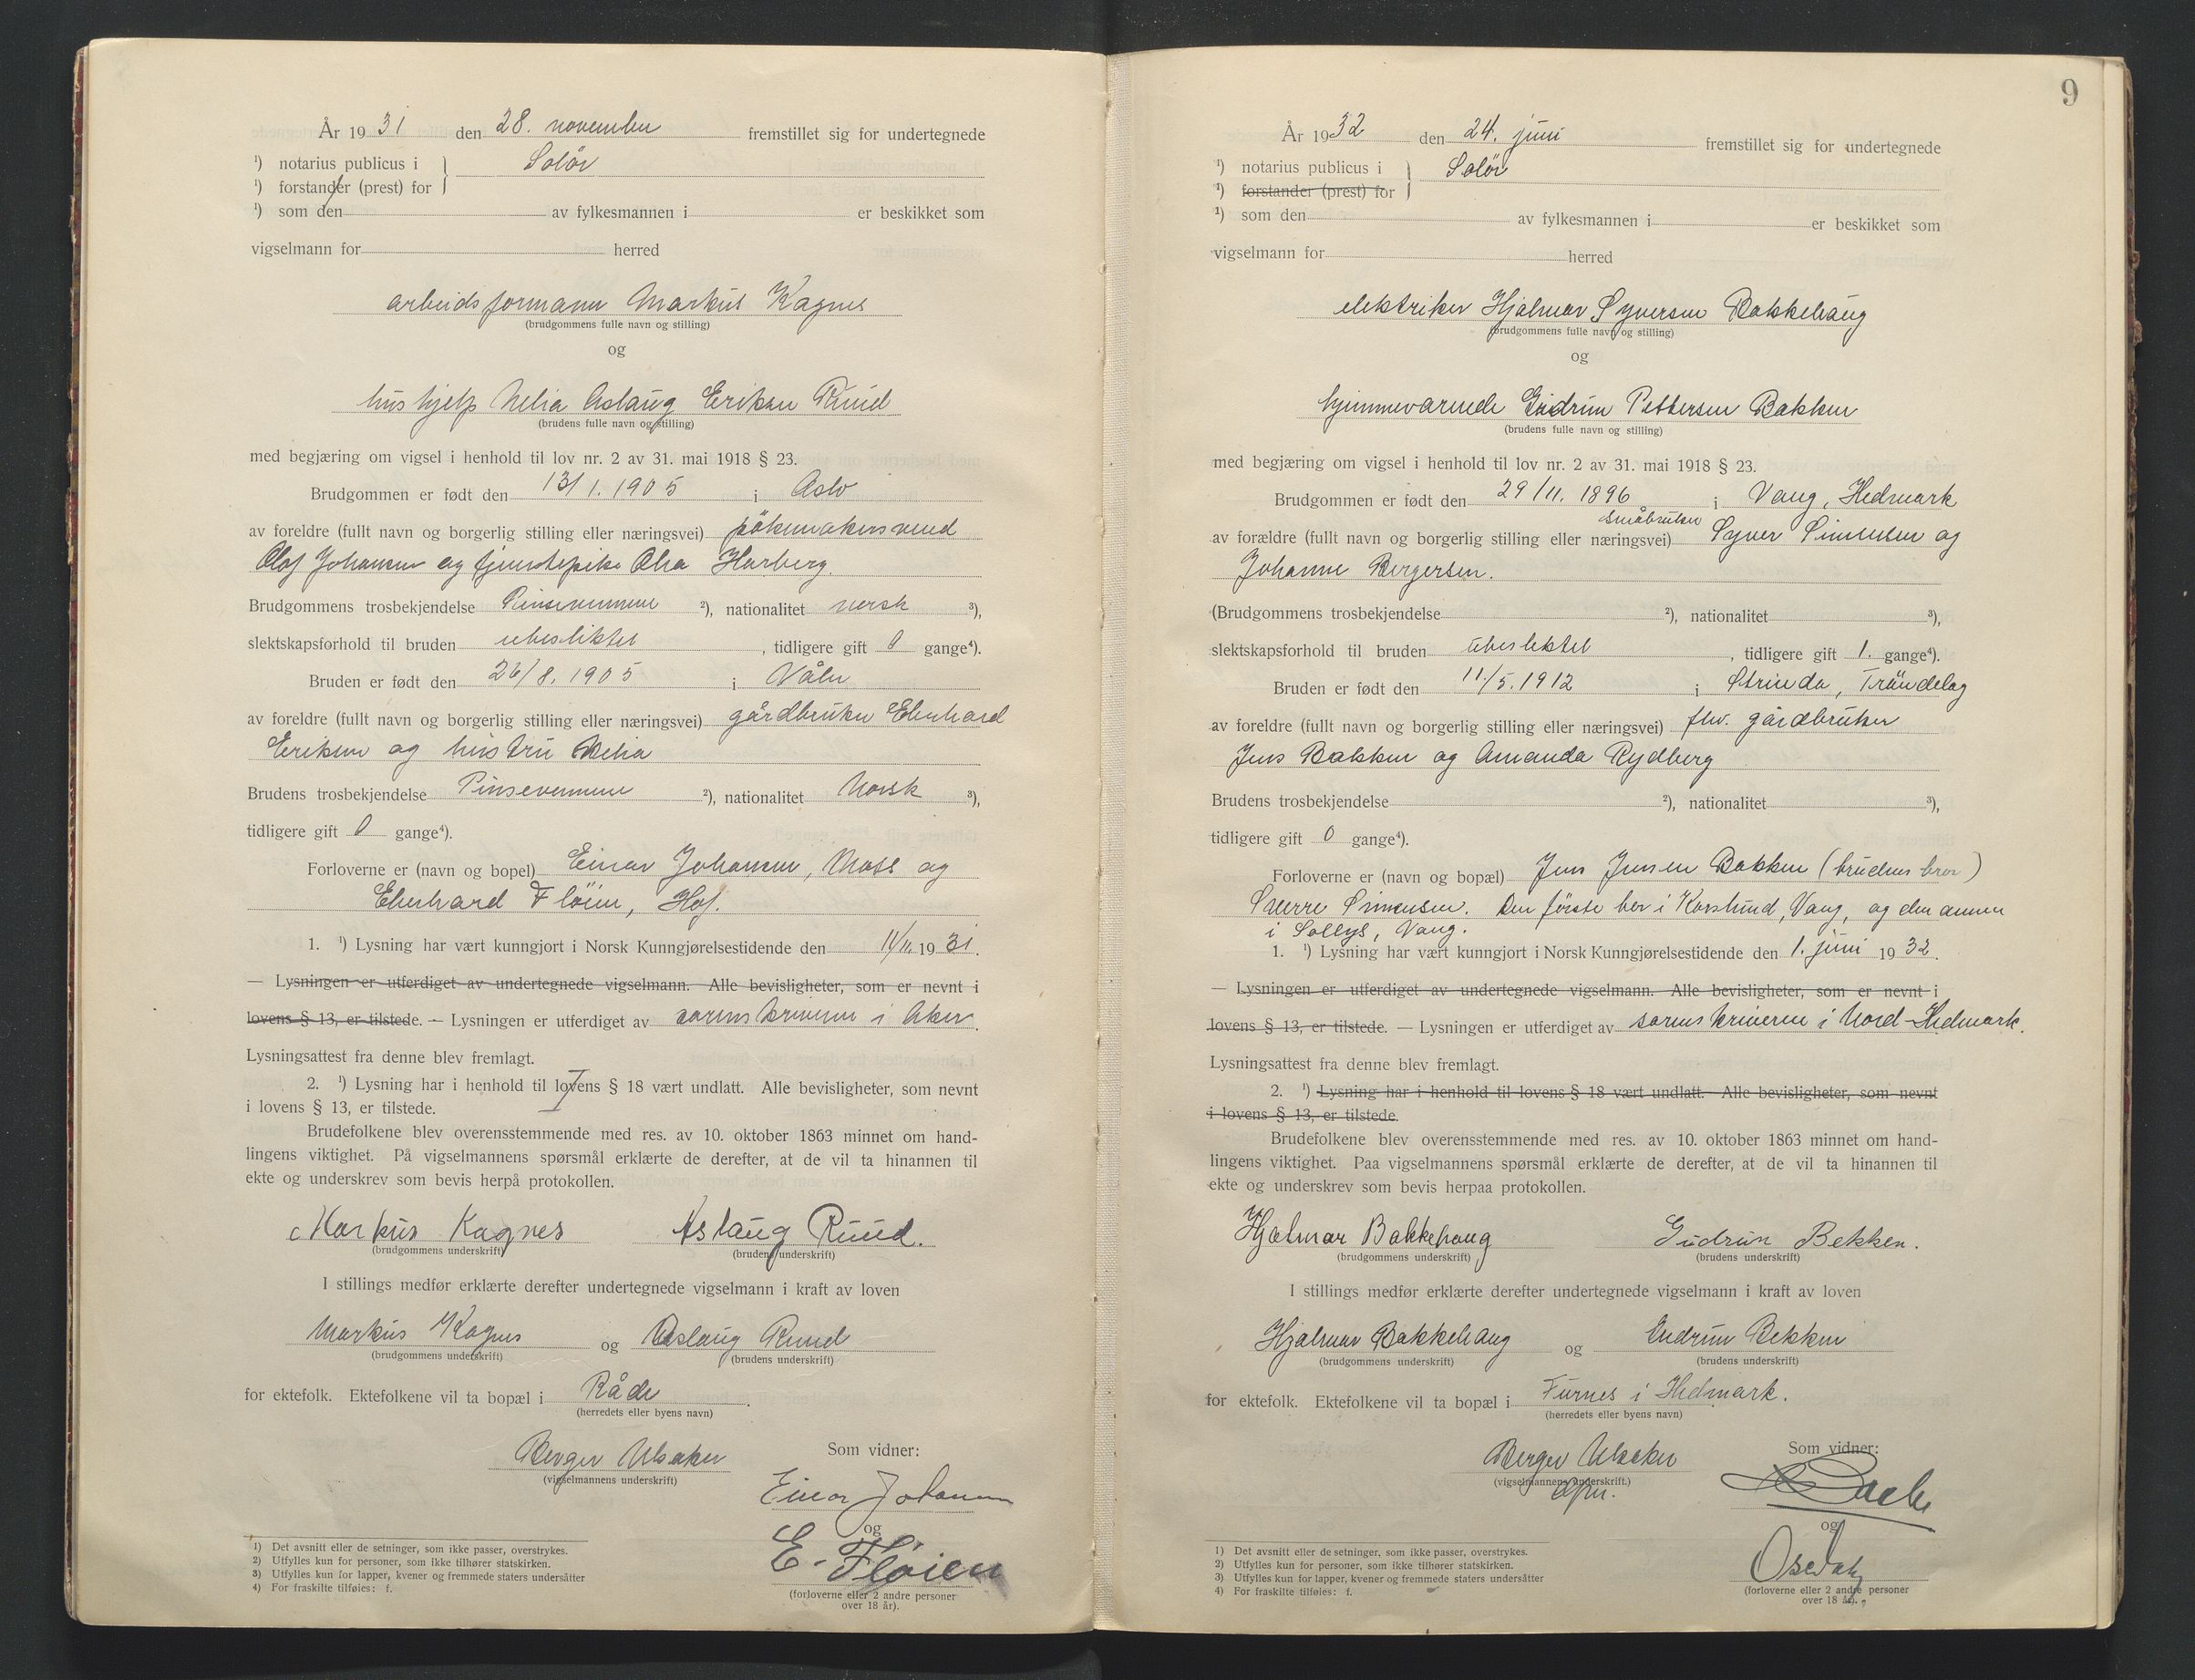 År 1931 den 28. november fremstillet sig for undertegnede
¹) notarius publicus i } Solör
¹) forstander (prest) for
¹) som den av fylkesmannen i er beskikket som
vigselmann for herred
arbeidsformann Markus Kagnes
(brudgommens fulle navn og stilling)
og
hushjelp Helia Aslaug Eriksen Ruud
(brudens fulle navn og stilling)
med begjæring om vigsel i henhold til lov nr. 2 av 31. mai 1918 § 23.
Brudgommen er født den 13/1. 1905 i Oslo
av foreldre (fullt navn og borgerlig stilling eller næringsvei)
Olof Johansen og tjenestepike Olea Harberg.
Brudgommens trosbekjendelse Pinsevennene ²), nationalitet norsk ³),
slektskapsforhold til bruden ubeslektet, tidligere gift 0 gange⁴).
Bruden er født den 26/8. 1905 i Våler
av foreldre (fullt navn og borgerlig stilling eller næringsvei) gårdbruker Ehrhard
Eriksen og hustru Helia
Brudens trosbekjendelse Pinsevennene ²), nationalitet norsk ³),
tidligere gift 0 gange⁴).
Forloverne er (navn og bopel) Einar Johansen, Moss og
Ehrhard Flöien, Hof.
1. ¹) Lysning har vært kunngjort i Norsk Kunngjørelsestidende den 11/11. 1931.
— Lysningen er utferdiget av undertegnede vigselmann. Alle bevisligheter, som er nevnt i
lovens § 13, er tilstede. — Lysningen er utferdiget av sorenskriveren i Aker.
Lysningsattest fra denne blev fremlagt.
2. ¹) Lysning har i henhold til lovens § 18 vært undlatt. Alle bevisligheter, som nevnt
i lovens § 13, er tilstede.
Brudefolkene blev overensstemmende med res. av 10. oktober 1863 minnet om hand-
lingens viktighet. På vigselmannens spørsmål erklærte de derefter, at de vil ta hinannen til
ekte og underskrev som bevis herpå protokollen.
Markus Kagnes Aslaug Ruud.
(brudgommens underskrift) (brudens underskrift)
I stillings medfør erklærte derefter undertegnede vigselmann i kraft av loven
Markus Kagnes og Aslaug Ruud
(brudgommens underskrift) (brudens underskrift)
for ektefolk. Ektefolkene vil ta bopæl i Råde.
(herredets eller byens navn)
Berger Ulsaker Som vidner:
(vigselmannens underskrift)
Einar Johansen
og
E. Fløien
(forloverne eller 2 andre personer
over 18 år).
1) Det avsnitt eller de setninger, som ikke passer, overstrykes.
2) Utfylles kun for personer, som ikke tilhører statskirken.
3) Utfylles kun for lapper, kvener og fremmede staters undersåtter
4) For fraskilte tilføies: f.
9
År 1932 den 24. juni fremstillet sig for undertegnede
¹) notarius publicus i } Solör
¹) forstander (prest) for
¹) som den av fylkesmannen i er beskikket som
vigselmann for herred
elektriker Hjalmar Syversen Bakkehaug
(brudgommens fulle navn og stilling)
og
hjemmeværende Gudrun Pettersen Bakken
(brudens fulle navn og stilling)
med begjæring om vigsel i henhold til lov nr. 2 av 31. mai 1918 § 23.
Brudgommen er født den 29/11. 1896 i Vang, Hedmark
småbruker
av forældre (fullt navn og borgerlig stilling eller næringsvei) Syver Simensen og
Johanne Bergersen.
(Brudgommens trosbekjendelse ²), nationalitet ³),
slektskapsforhold til bruden ubeslektet, tidligere gift 1. gange⁴).
Bruden er født den 11/5. 1912 i Strinda, Tröndelag
av foreldre (fullt navn og borgerlig stilling eller næringsvei) fhv. gårdbruker
Jens Bakken og Amanda Rydberg
Brudens trosbekjendelse ²), nationalitet ³),
tidligere gift 0 gange⁴).
Forloverne er (navn og bopæl) Jens Jensen Bakken (brudens bror)
Sverre Simensen. Den förste bor i Korslund, Vang, og den annen
i Sollys, Vang.
1. ¹) Lysning har vært kunngjort i Norsk Kunngjørelsestidende den 1. juni 1932.
— Lysningen er utferdiget av undertegnede vigselmann. Alle bevisligheter, som er nevnt i
lovens § 13, er tilstede. — Lysningen er utferdiget av sorenskriveren i Nord-Hedmark.
Lysningsattest fra denne blev fremlagt.
2. ¹) Lysning har i henhold til lovens § 18 vært undlatt. Alle bevisligheter, som nevnt
i lovens § 13, er tilstede.
Brudefolkene blev overensstemmende med res. av 10. oktober 1863 minnet om hand-
lingens viktighet. Paa vigselmannens spørsmål erklærte de derefter, at de vil ta hinannen til
ekte og underskrev som bevis herpaa protokollen.
Hjalmar Bakkehaug Gudrun Bekken.
(brudgommens underskrift) (brudens underskrift)
I stillings medfør erklærte derefter undertegnede vigselmann i kraft av loven
Hjalmar Bakkehaug og Gudrun Bekken
(brudgommens underskrift) (brudens underskrift)
for ektefolk. Ektefolkene vil ta bopæl i Furnes i Hedmark.
(herredets eller byens navn)
Berger Ulsaker Som vidner:
(vigselmannens underskrift.)
og
(forloverne eller 2 andre personer
over 18 år).
1) Det avsnitt eller de setninger, som ikke passer, overstrykes.
2) Utfylles kun for personer, som ikke tilhører statskirken.
3) Utfylles kun for lapper, kvener og fremmede staters undersåtter
4) For fraskilte tilføies: f.